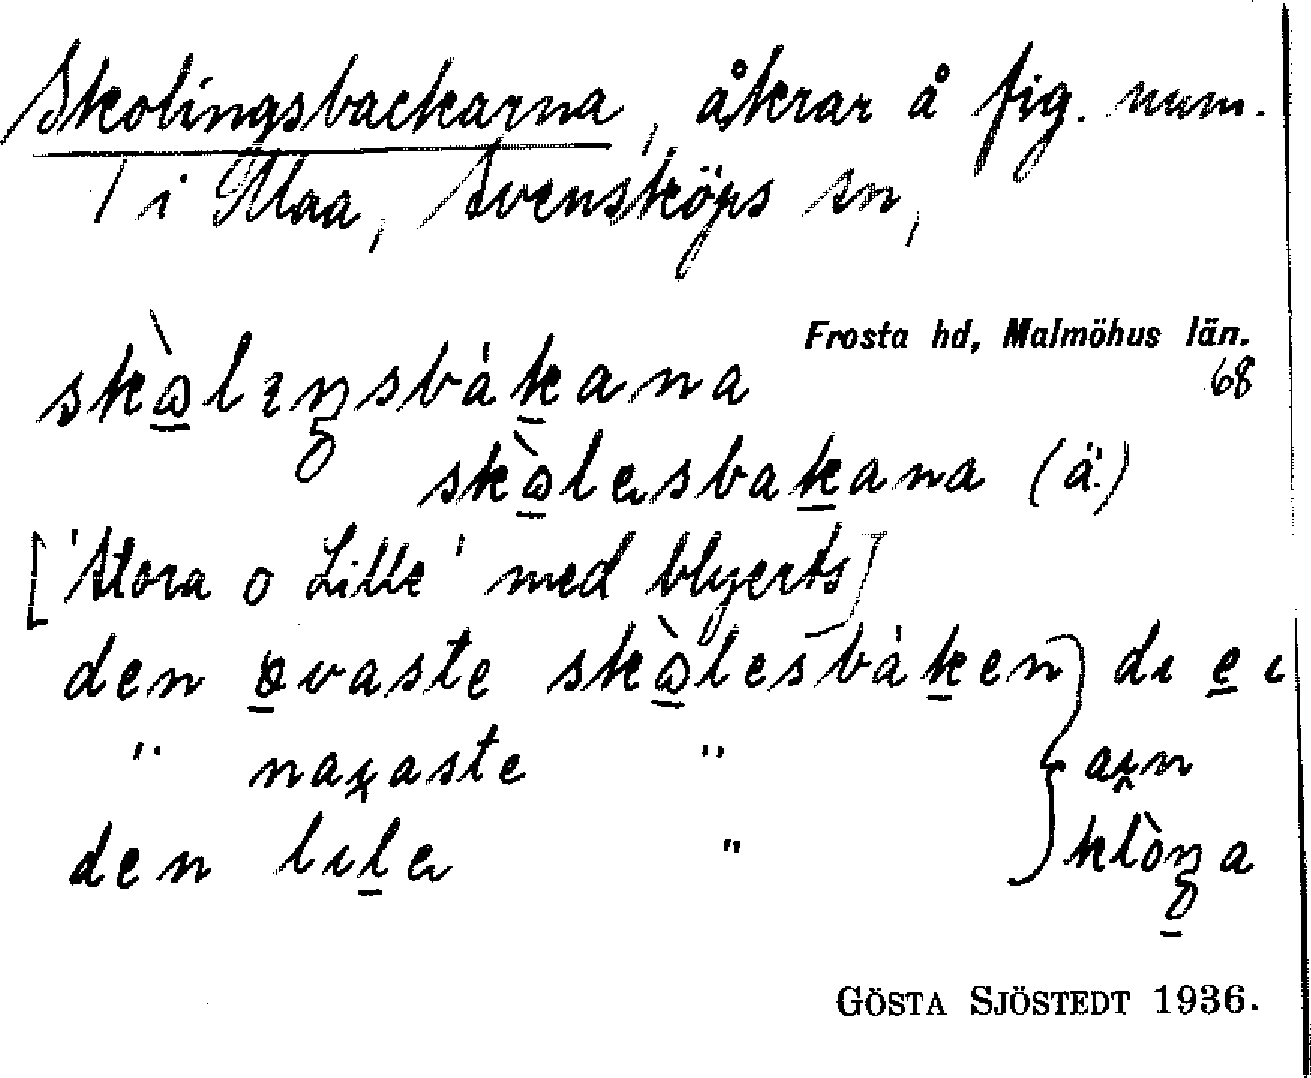 Skolingsbackarna, åkrar å fig. num.
1 i Maa, Svensköps sn,
Frosta hd, Malmöhus län.
68
skɷ̀lıŋsbákana
skɷ̀ləsbakana (ä.)
['Stora o Lille' med blyerts]
den ɵvaste skɷ̀lesbáken } dı e ı
" naɹaste " } aɹn
den lılə " } klòŋa
GÖSTA SJÖSTEDT 1936.